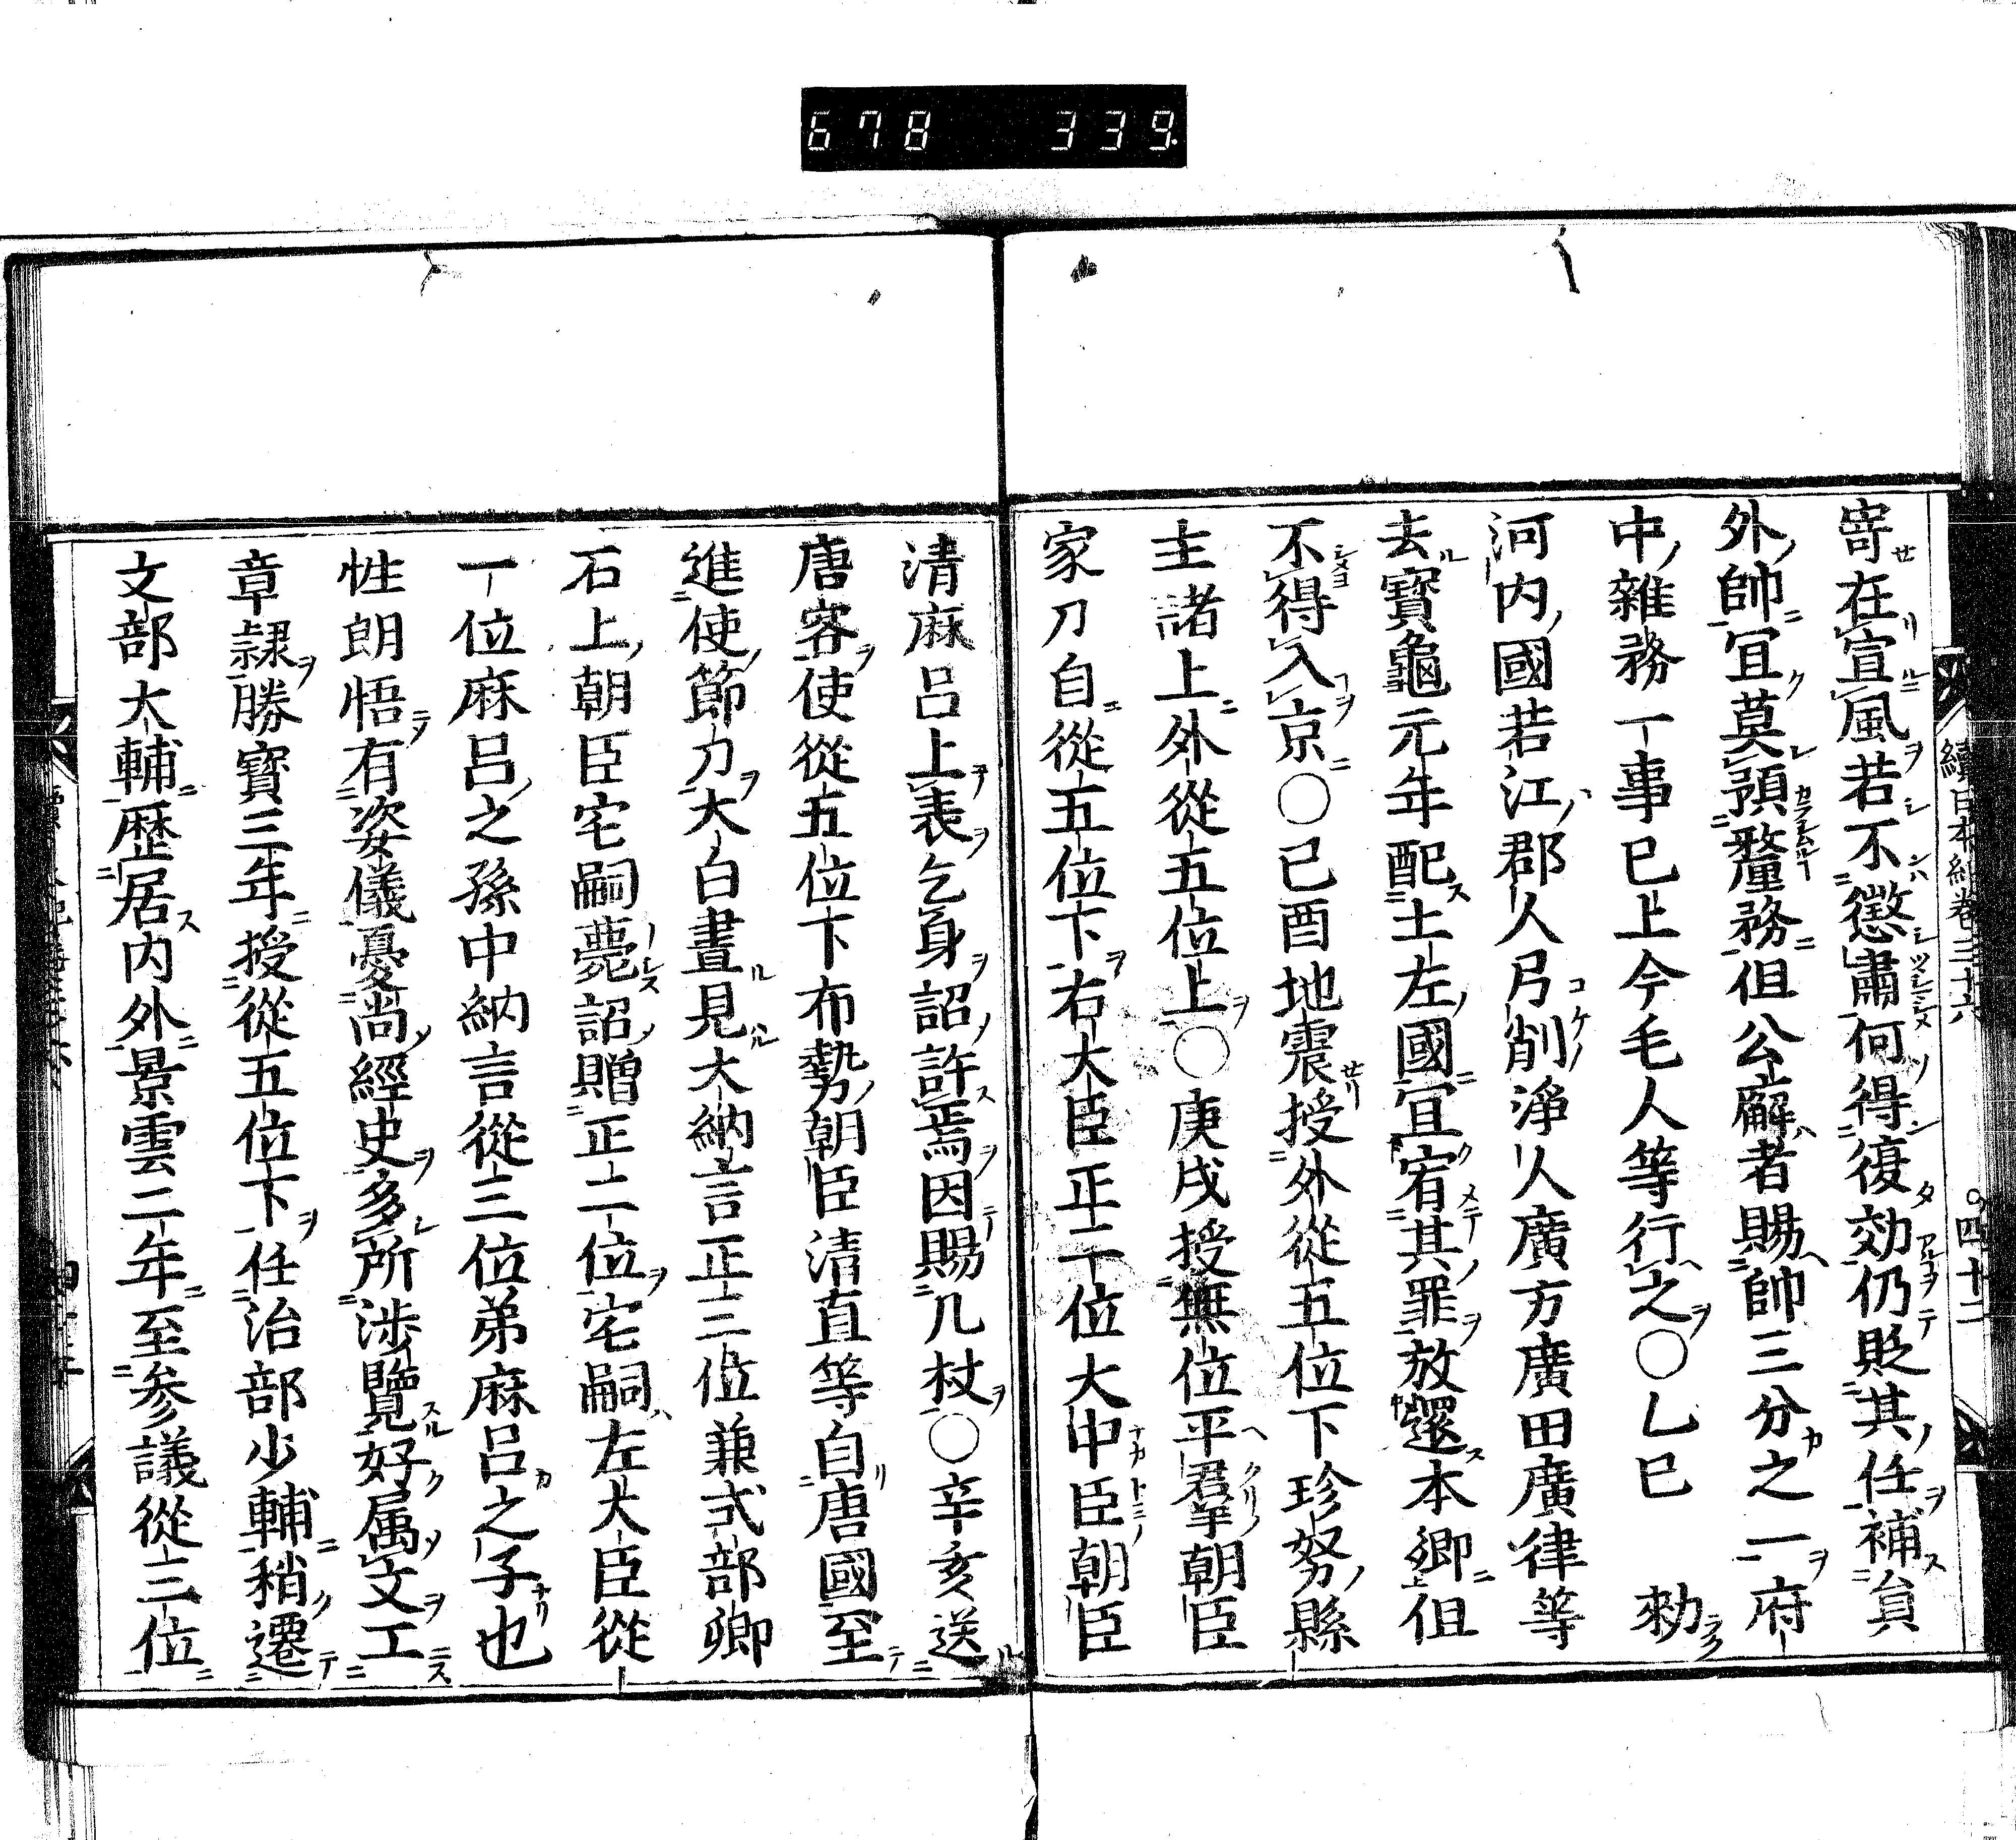 678 339.
續日本紀卷三十六 ○四十二
寄在宣風若不懲肅何得復効仍貶其任補負
外帥宜莫預釐務但公廨者賜帥三分之一府
中雜務一事已上今毛人等行之○乙巳 勅
河内國若江郡人弓削淨人廣方廣田廣律等
去寶龜元年配土左國宜宥其罪放還本郷但
不得入京○己酉地震授外從五位下珍努縣
主諸上外從五位上○庚戌授無位平群朝臣
家刀自從五位下右大臣正二位大中臣朝臣
清麻呂上表乞身詔許焉因賜几杖○辛亥送
唐客使從五位下布勢朝臣清直等自唐國至
進使節刀大白晝見大納言正三位兼式部卿
石上朝臣宅嗣薨詔贈正二位宅嗣左大臣從
一位麻呂之孫中納言從三位弟麻呂之子也
性朗悟有姿儀憂尚經史多所渉覽好属文工
章隷勝寶三年授從五位下任治部少輔稍遷
文部大輔歴居内外景雲二年至参議從三位